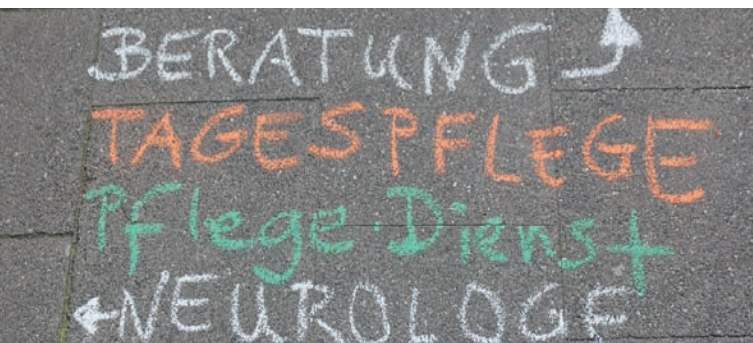 BERATUNG
TAGESPFLEGE
Pflege·Dienst
NEUROLOGE